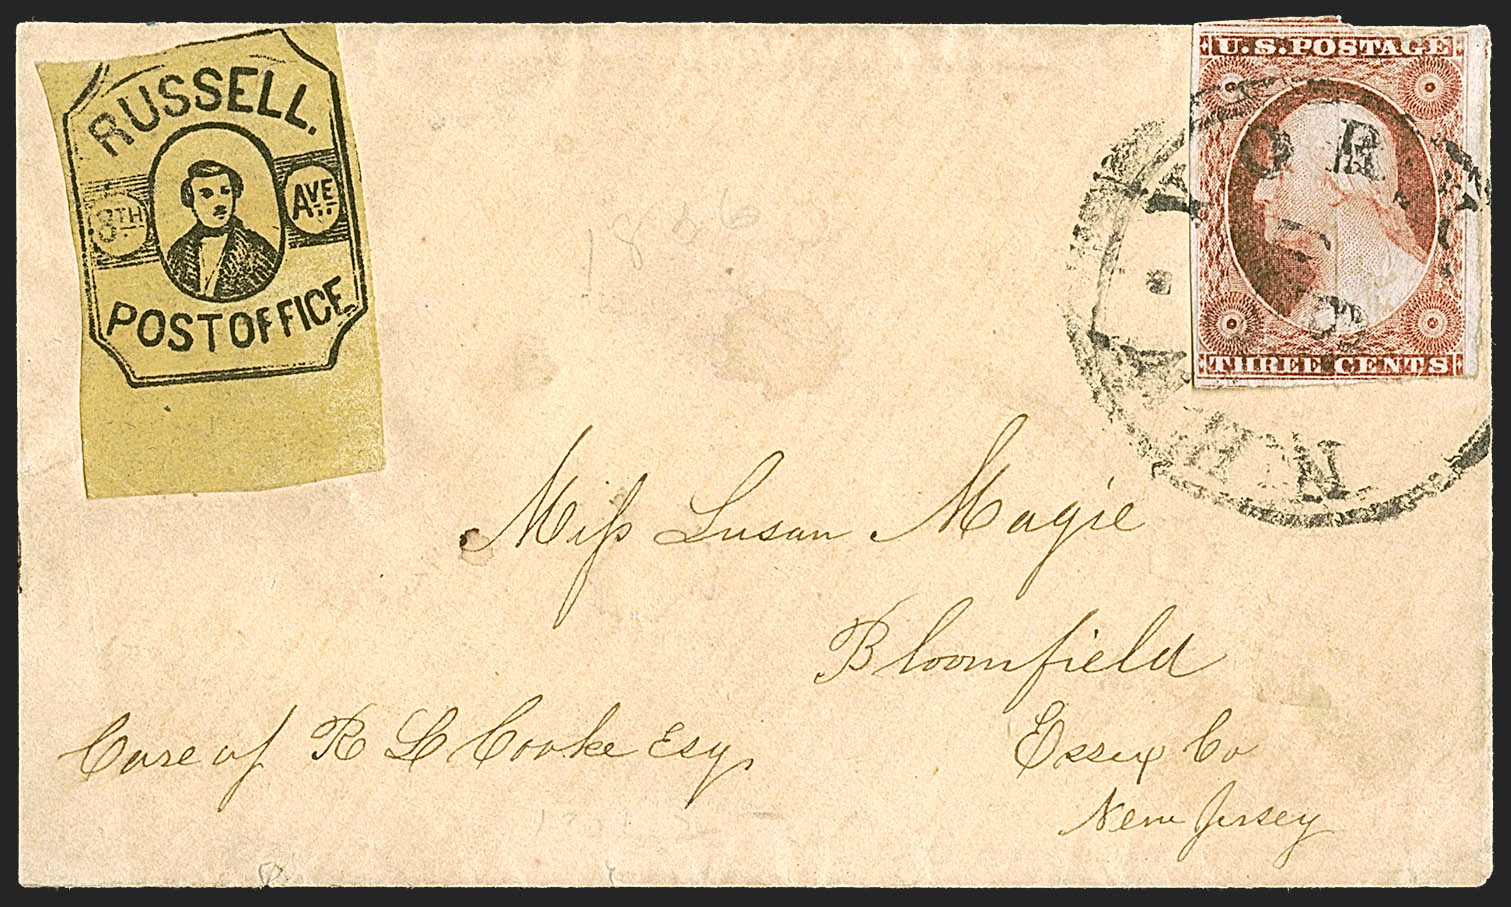 RUSSELL.
8TH AVE
POST OFFICE.
U.S. POSTAGE
THREE CENTS
NEW-YORK
1856
Miss Susan Magie
Bloomfield
Care of R L Cooke Esq.
Essex Co
New Jersey